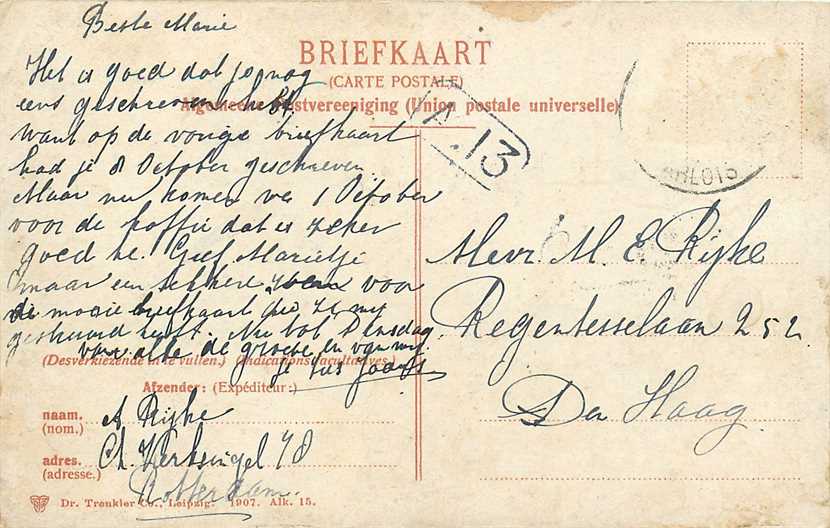 Beste Marie
BRIEFKAART
(CARTE POSTALE)
Algemeene Postvereeniging (Union postale universelle)
Het is goed dat je nog
eens geschreven hebt
want op de vorige briefkaart
had je 8 October geschreven.
Maar nu komen we 1 October
voor de koffie dat is zeker
goed he. Geef Marietje
maar een lekkere voor
de mooie briefkaart die ze my
gestuurd heeft. Nu tot Dinsdag
van alle de groete en van my
je zus
(Desverkiezende in te vullen.) (Indications facultatives.)
Afzender: (Expéditeur:)
naam. A Rijke
(nom.)
adres. Ch. Kerksingel 48
(adresse.)
Rotterdam.
Dr. Trenkler Co., Leipzig. 1907. Alk. 15.
13
Mevr. M. E. Rijke
Regentesselaan 252
Den Haag